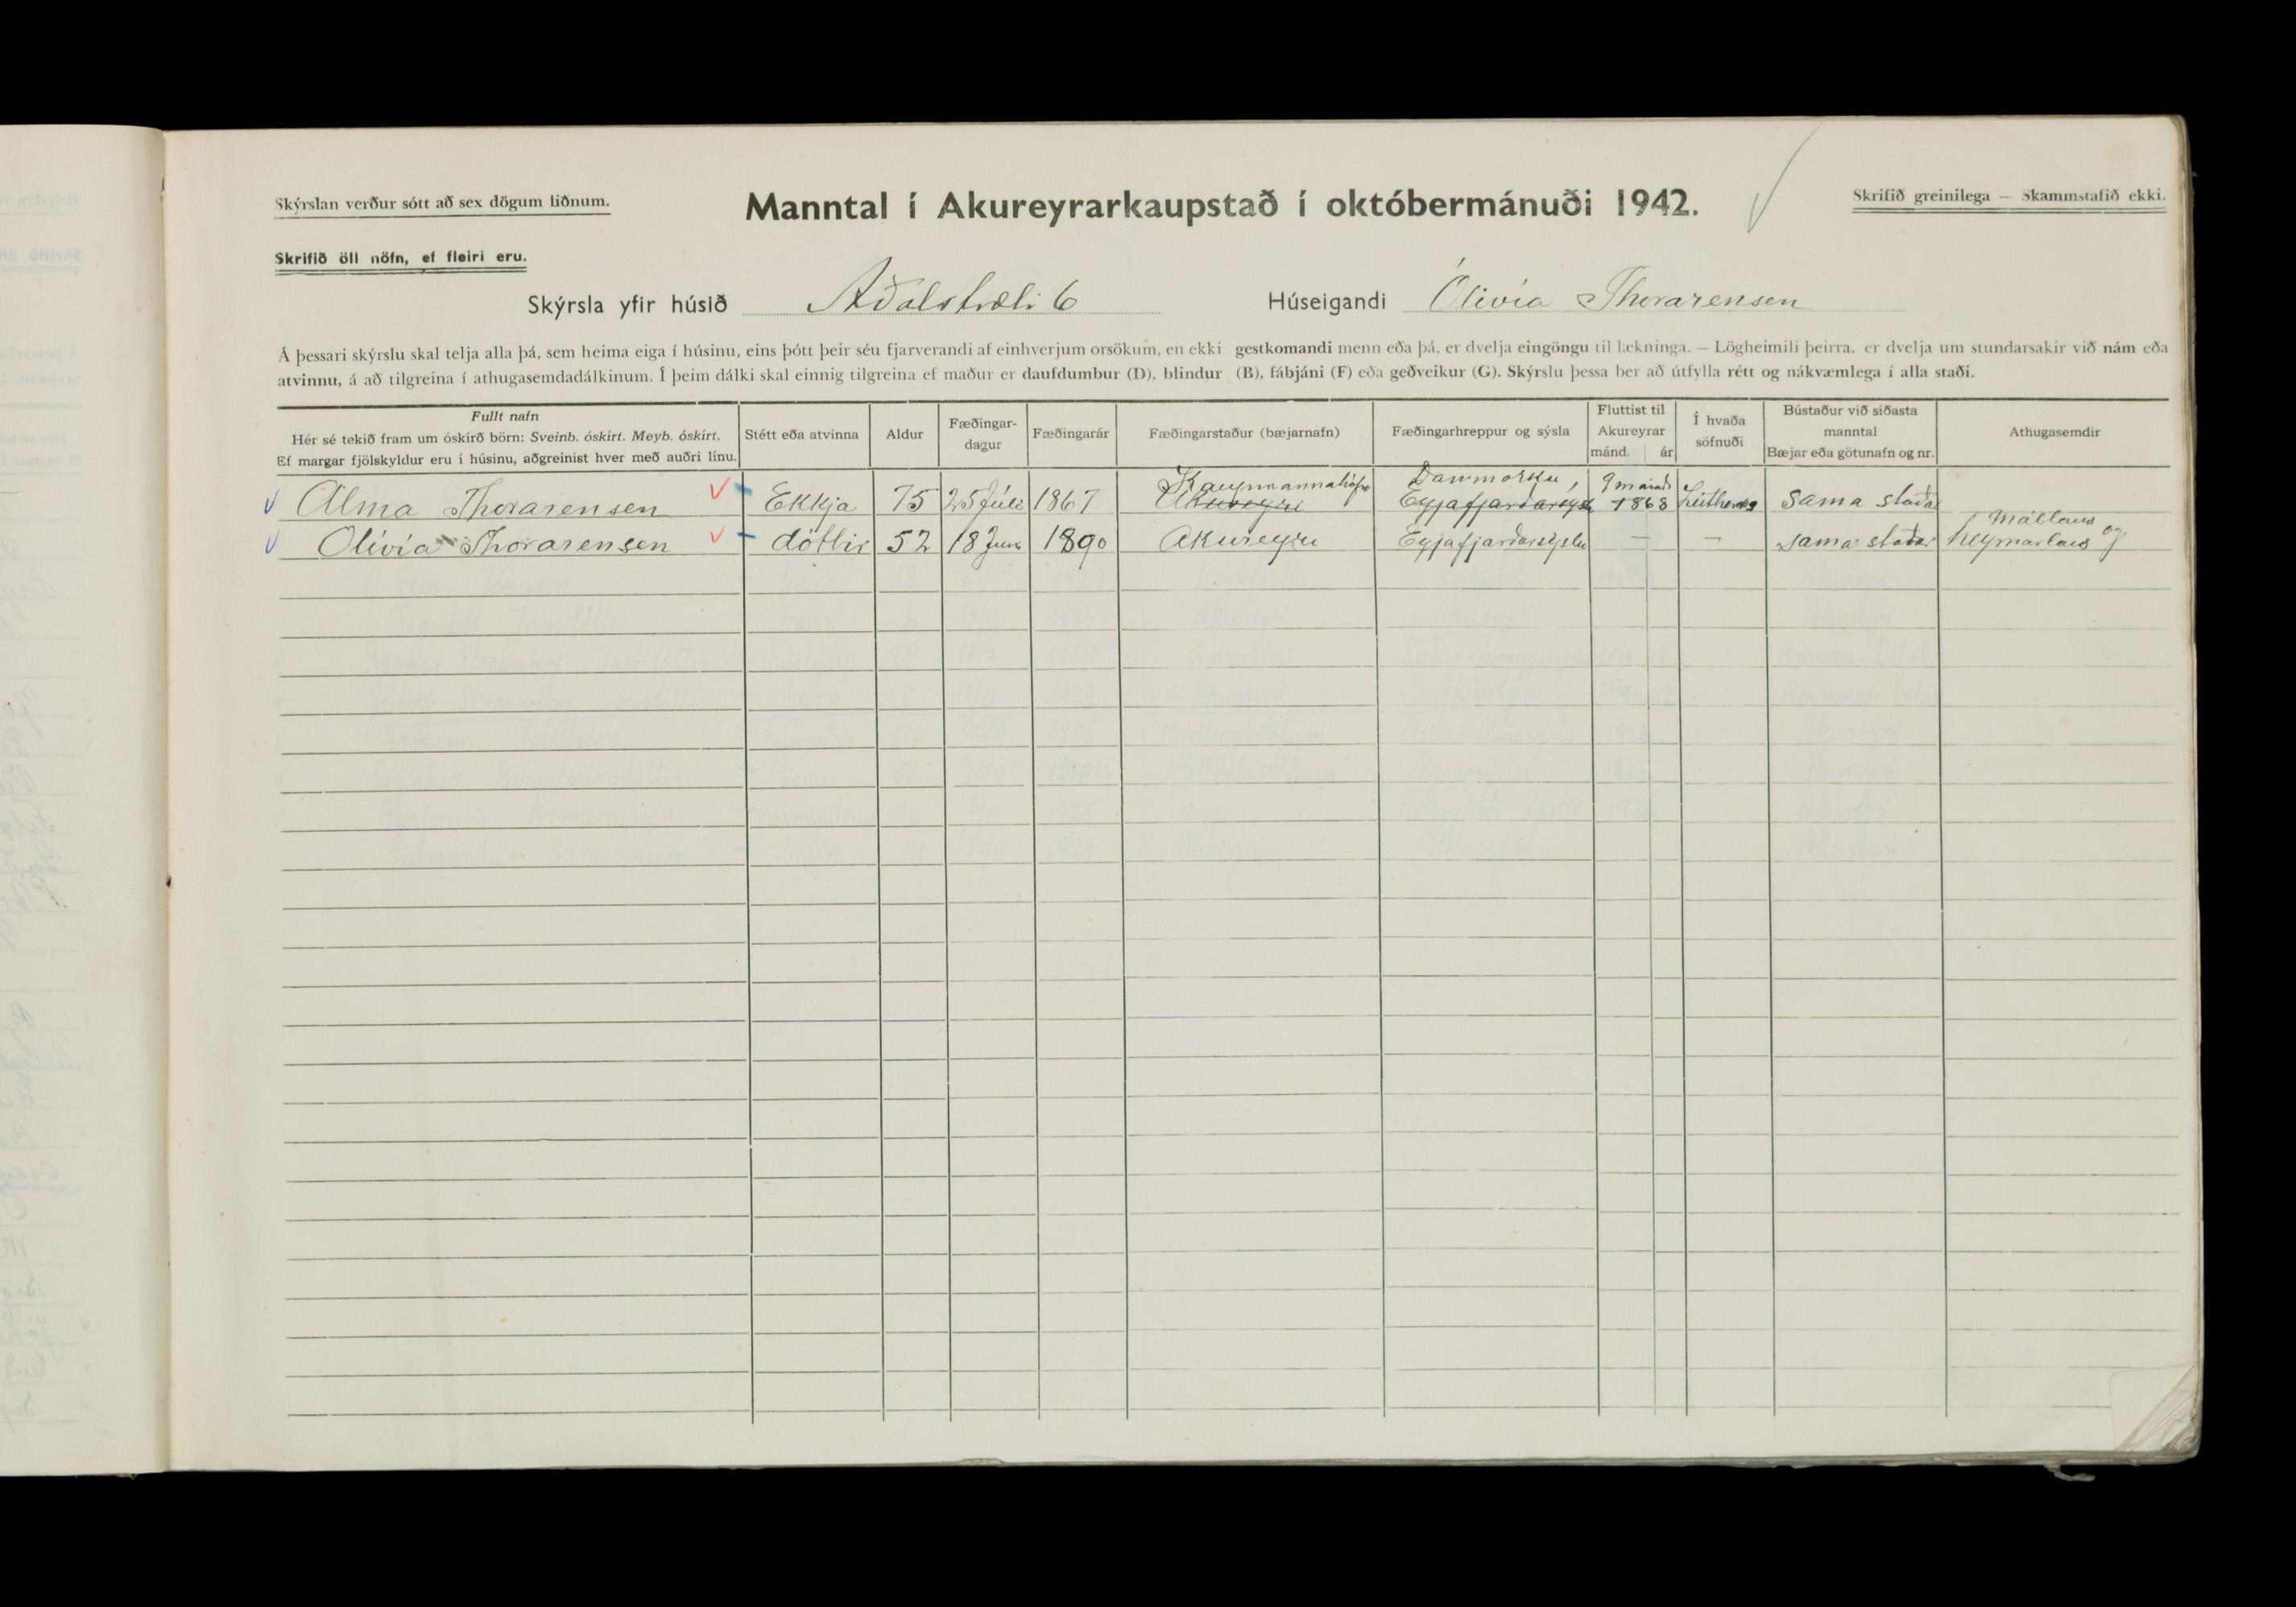 Skýrslan verður sótt að sex dögum liðnum.
Manntal í Akureyrarkaupstað í októbermánuði 1942.
Skrifið greinilega — Skammstafið ekki.
Skrifið öll nöfn, ef fleiri eru.
Skýrsla yfir húsið Aðalstræti 6 Húseigandi Ólivía Thorarensen
Á þessari skýrslu skal telja alla þá, sem heima eiga í húsinu, eins þótt þeir séu fjarverandi af einhverjum orsökum, en ekki gestkomandi menn eða þá, er dvelja eingöngu til lækninga. — Lögheimili þeirra, er dvelja um stundarsakir við nám eða
atvinnu, á að tilgreina í athugasemdadálkinum. Í þeim dálki skal einnig tilgreina ef maður er daufdumbur (D), blindur (B), fábjáni (F) eða geðveikur (G). Skýrslu þessa ber að útfylla rétt og nákvæmlega í alla staði.
Fullt nafn
Hér sé tekið fram um óskírð börn: Sveinb. óskírt. Meyb. óskírt.
Ef margar fjölskyldur eru í húsinu, aðgreinist hver með auðri línu.
Stétt eða atvinna
Aldur
Fæðingar-
dagur
Fæðingarár
Fæðingarstaður (bæjarnafn)
Fæðingarhreppur og sýsla
Fluttist til
Akureyrar
mánd. ár
Í hvaða
söfnuði
Bústaður við síðasta
manntal
Bæjar eða götunafn og nr.
Athugasemdir
Kaupmannahöfn Danmörku
Alma Thorarensen Ekkja 75 25 Júlí 1867 Akureyri Eyjafjarðarsýsla 1868 sama staðar
Olivía Thorarensen dóttir 52 18 Júní 1890 Akureyri Eyjafjarðarsýslu — — sama staðar
Mállaus og
heyrnarlaus